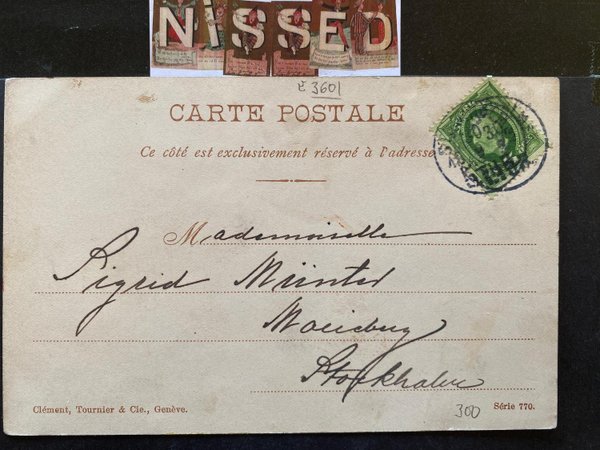 NISSED
E 3601
CARTE POSTALE
Ce côté est exclusivement réservé à l'adresse
Mademoiselle
Sigrid Münter
Stockholm
300
Clément, Tournier & Cie., Genève.
Série 770.